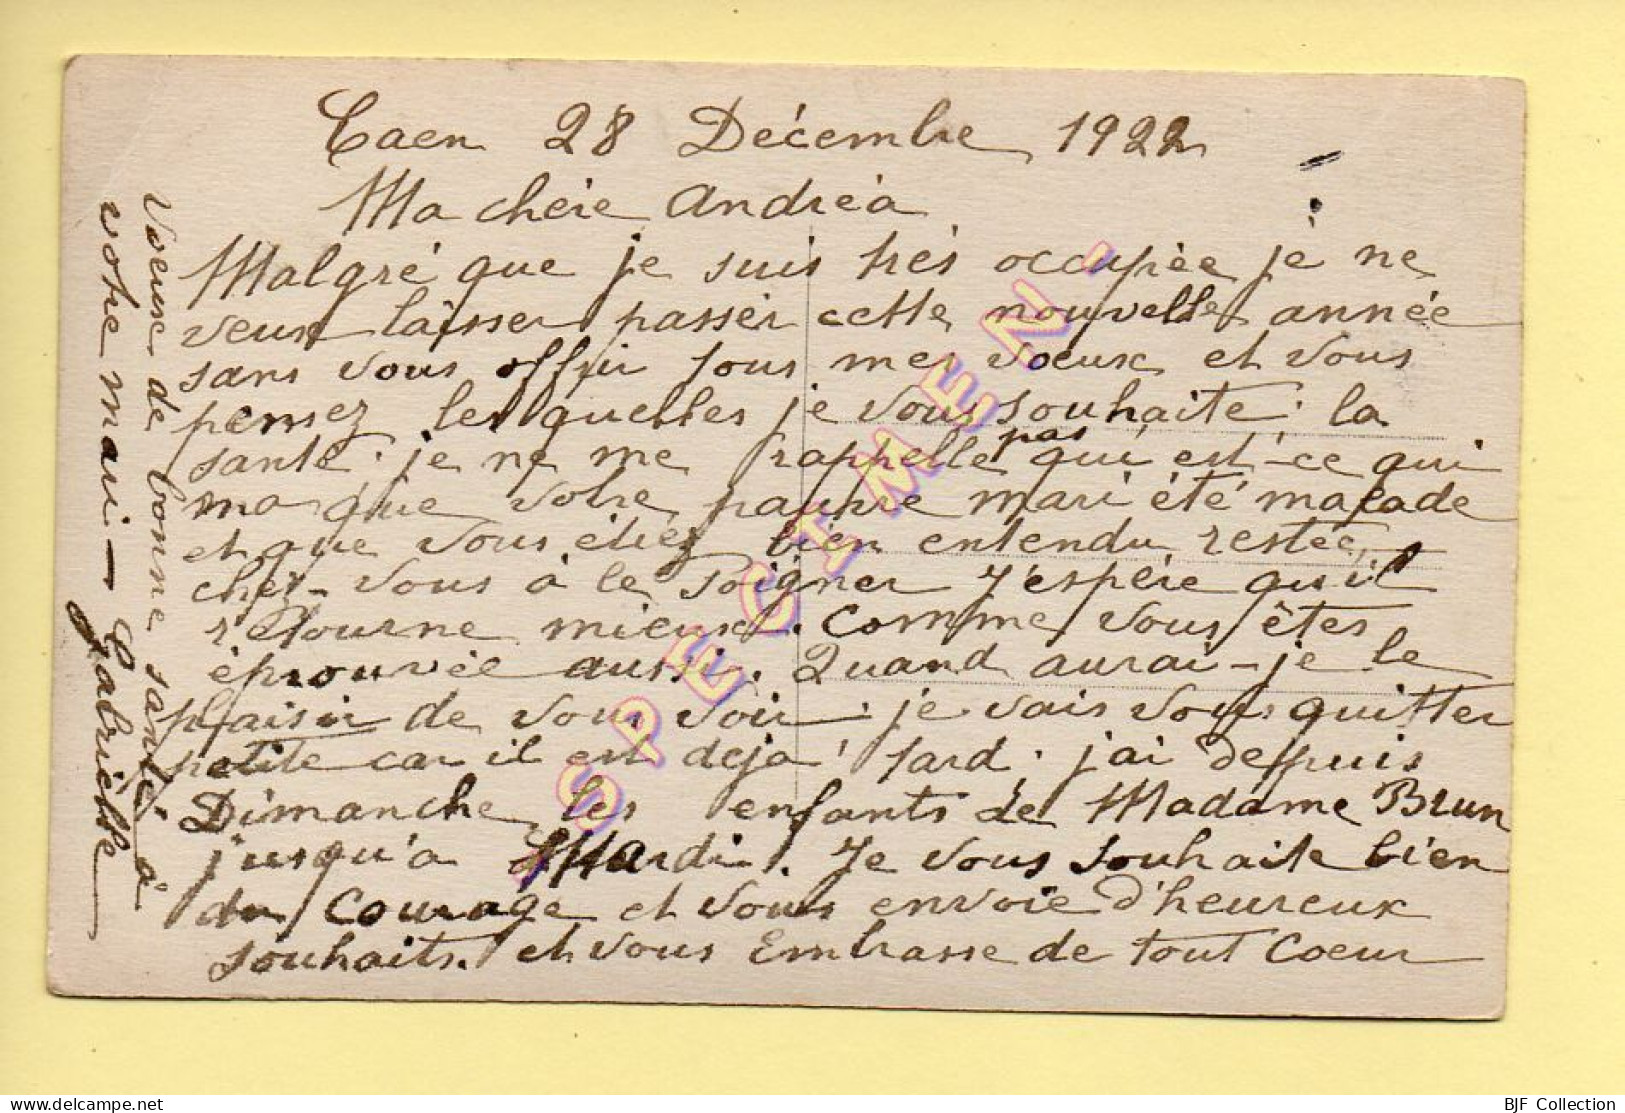 Caen 28 Décembre 1922
Ma chére Andréa
Malgré que je suis trés occupée je ne
veux laisser passer cette nouvelle année
sans vous offrir tous mes voeux et vous
pensez les quelles je vous souhaite : la
santé. je ne me rappelle pas qui est-ce qui
ma que votre pauvre mari été malade
et que vous étiez bien entendu restée
chez-vous à le soigner J'espère qu'il
retourne mieux. comme vous êtes
éprouvée aussi. Quand aurai-je le
plaisir de vous voir. je vais vous quitter
petite car il est deja tard. j'ai depuis
Dimanche les enfants de Madame Brun
jusqu'a Mardi. Je vous souhaite bien
du courage et vous envoie d'heureux
souhaits. et vous embrasse de tout coeur
Voeuse de bonne santé à
votre mari — Gabriėlle
SPECIMEN
BJF Collection